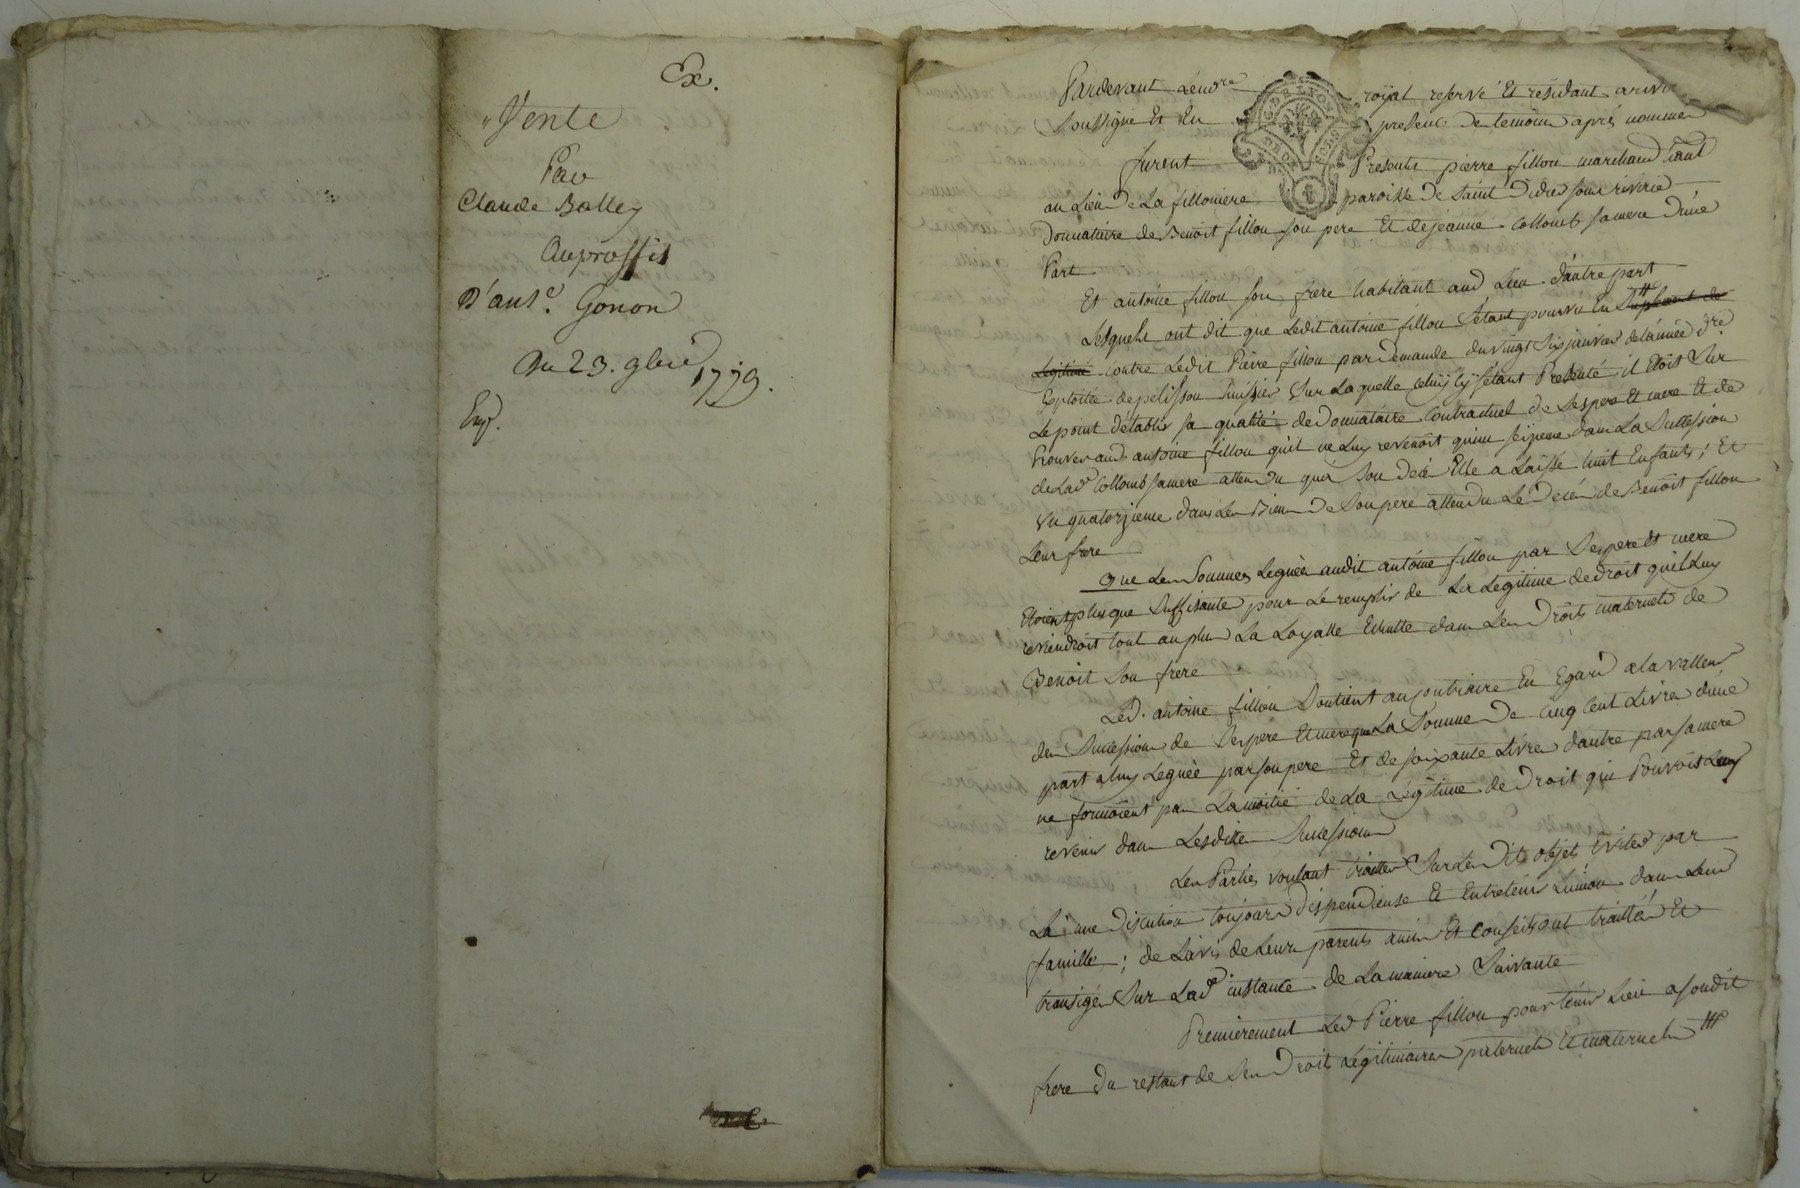 Ex.
"Vente
Par
Claude Balley
Auproffit
D'antᵉ. Gonon
Du 23. 9bre 1779.
Exp.
Pardevant Lenore royal reservé Et residant arive
Soussigné Et En presence des temoins après nommés
furent Presents pierre fillon marchand
au Lieu de La filloniere paroisse de Saint Didier sous riverie
Donnataire de Benoit fillon son pere Et de jeanne Collomb sa mere d'une
Part
Et antoine fillon son frere habitant aud Lieu d'autre part
Lesquels ont dit que Ledit antoine fillon s'étant pourvu En
Legitime contre Ledit Pierre fillon par Demande du vingt Six janvier de l'année dre
Exploitté de pelisson huissier Sur Laquelle celuy cy s'etant Presenté il Etoit Sur
Le point d'établir sa qualité de Donnataire Contractuel de Ses pere Et mere Et de
Prouver aud. antoine fillon qu'il ne Luy revenoit qu'un seizieme dans La Succession
de Lade Collomb sa mere attendu qu'a Son decès Elle a Laissé huit Enfants ; Et
Un quatorzieme dans Les Biens de Son pere attendu Le Decès de Benoit fillon
Leur frere
que Les Sommes Leguées audit antoine fillon par Ses pere Et mere
Etoient plus que Suffisante pour Le remplir de La Legitime de droit qu'il Luy
reviendroit tout au plus La Loyalle Echutte dans Les Droits maternels de
Benoit Son frere
Led. antoine fillon Soutient au contraire En Egard a la valleur
des Successions de Ses pere Et mere que La Somme De Cinq Cent Livres d'une
part a luy Leguée par Son pere Et de soixante Livres d'autre par sa mere
ne formoient pas La moitié de La Légitime de Droit qui Pouvoit Luy
revenir dans Lesdittes Successions
Les Parties voulant traitter Sur Les Dits objets Eviter par
La une Discution toujours dispendieuse Et Entretenir L'union dans Leur
famille ; de L'avis de Leurs parents amis Et Conseils ont traittés Et
transigés Sur Lade instance de La maniere Suivante
Premierement Led Pierre fillon pour tenir Lieu a Sondit
frere du restant de Ses Droits Légitimaires paternels Et maternels